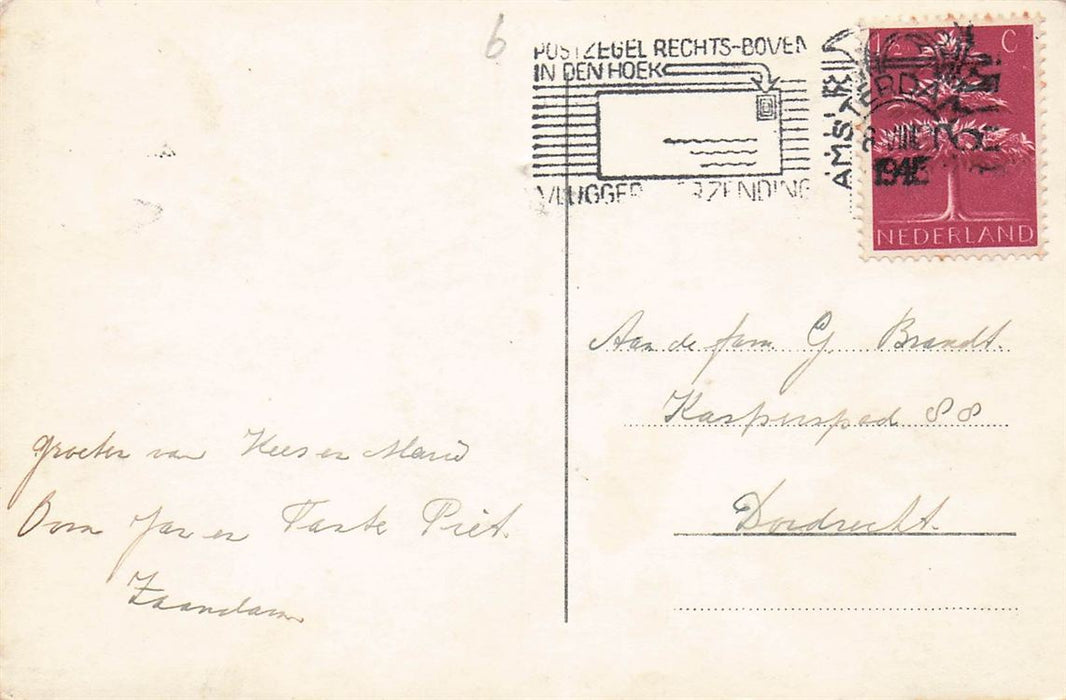 6
POSTZEGEL RECHTS-BOVEN
IN DEN HOEK
VLUGGER VERZENDING
AMSTERDAM
8 VIII
1945
1½ C
NEDERLAND
Aan de fam. G. Brandt.
Kasperspad 88
Dordrecht.
groeten van Kees en Marie
Oom Jan en Tante Piet.
Zaandam